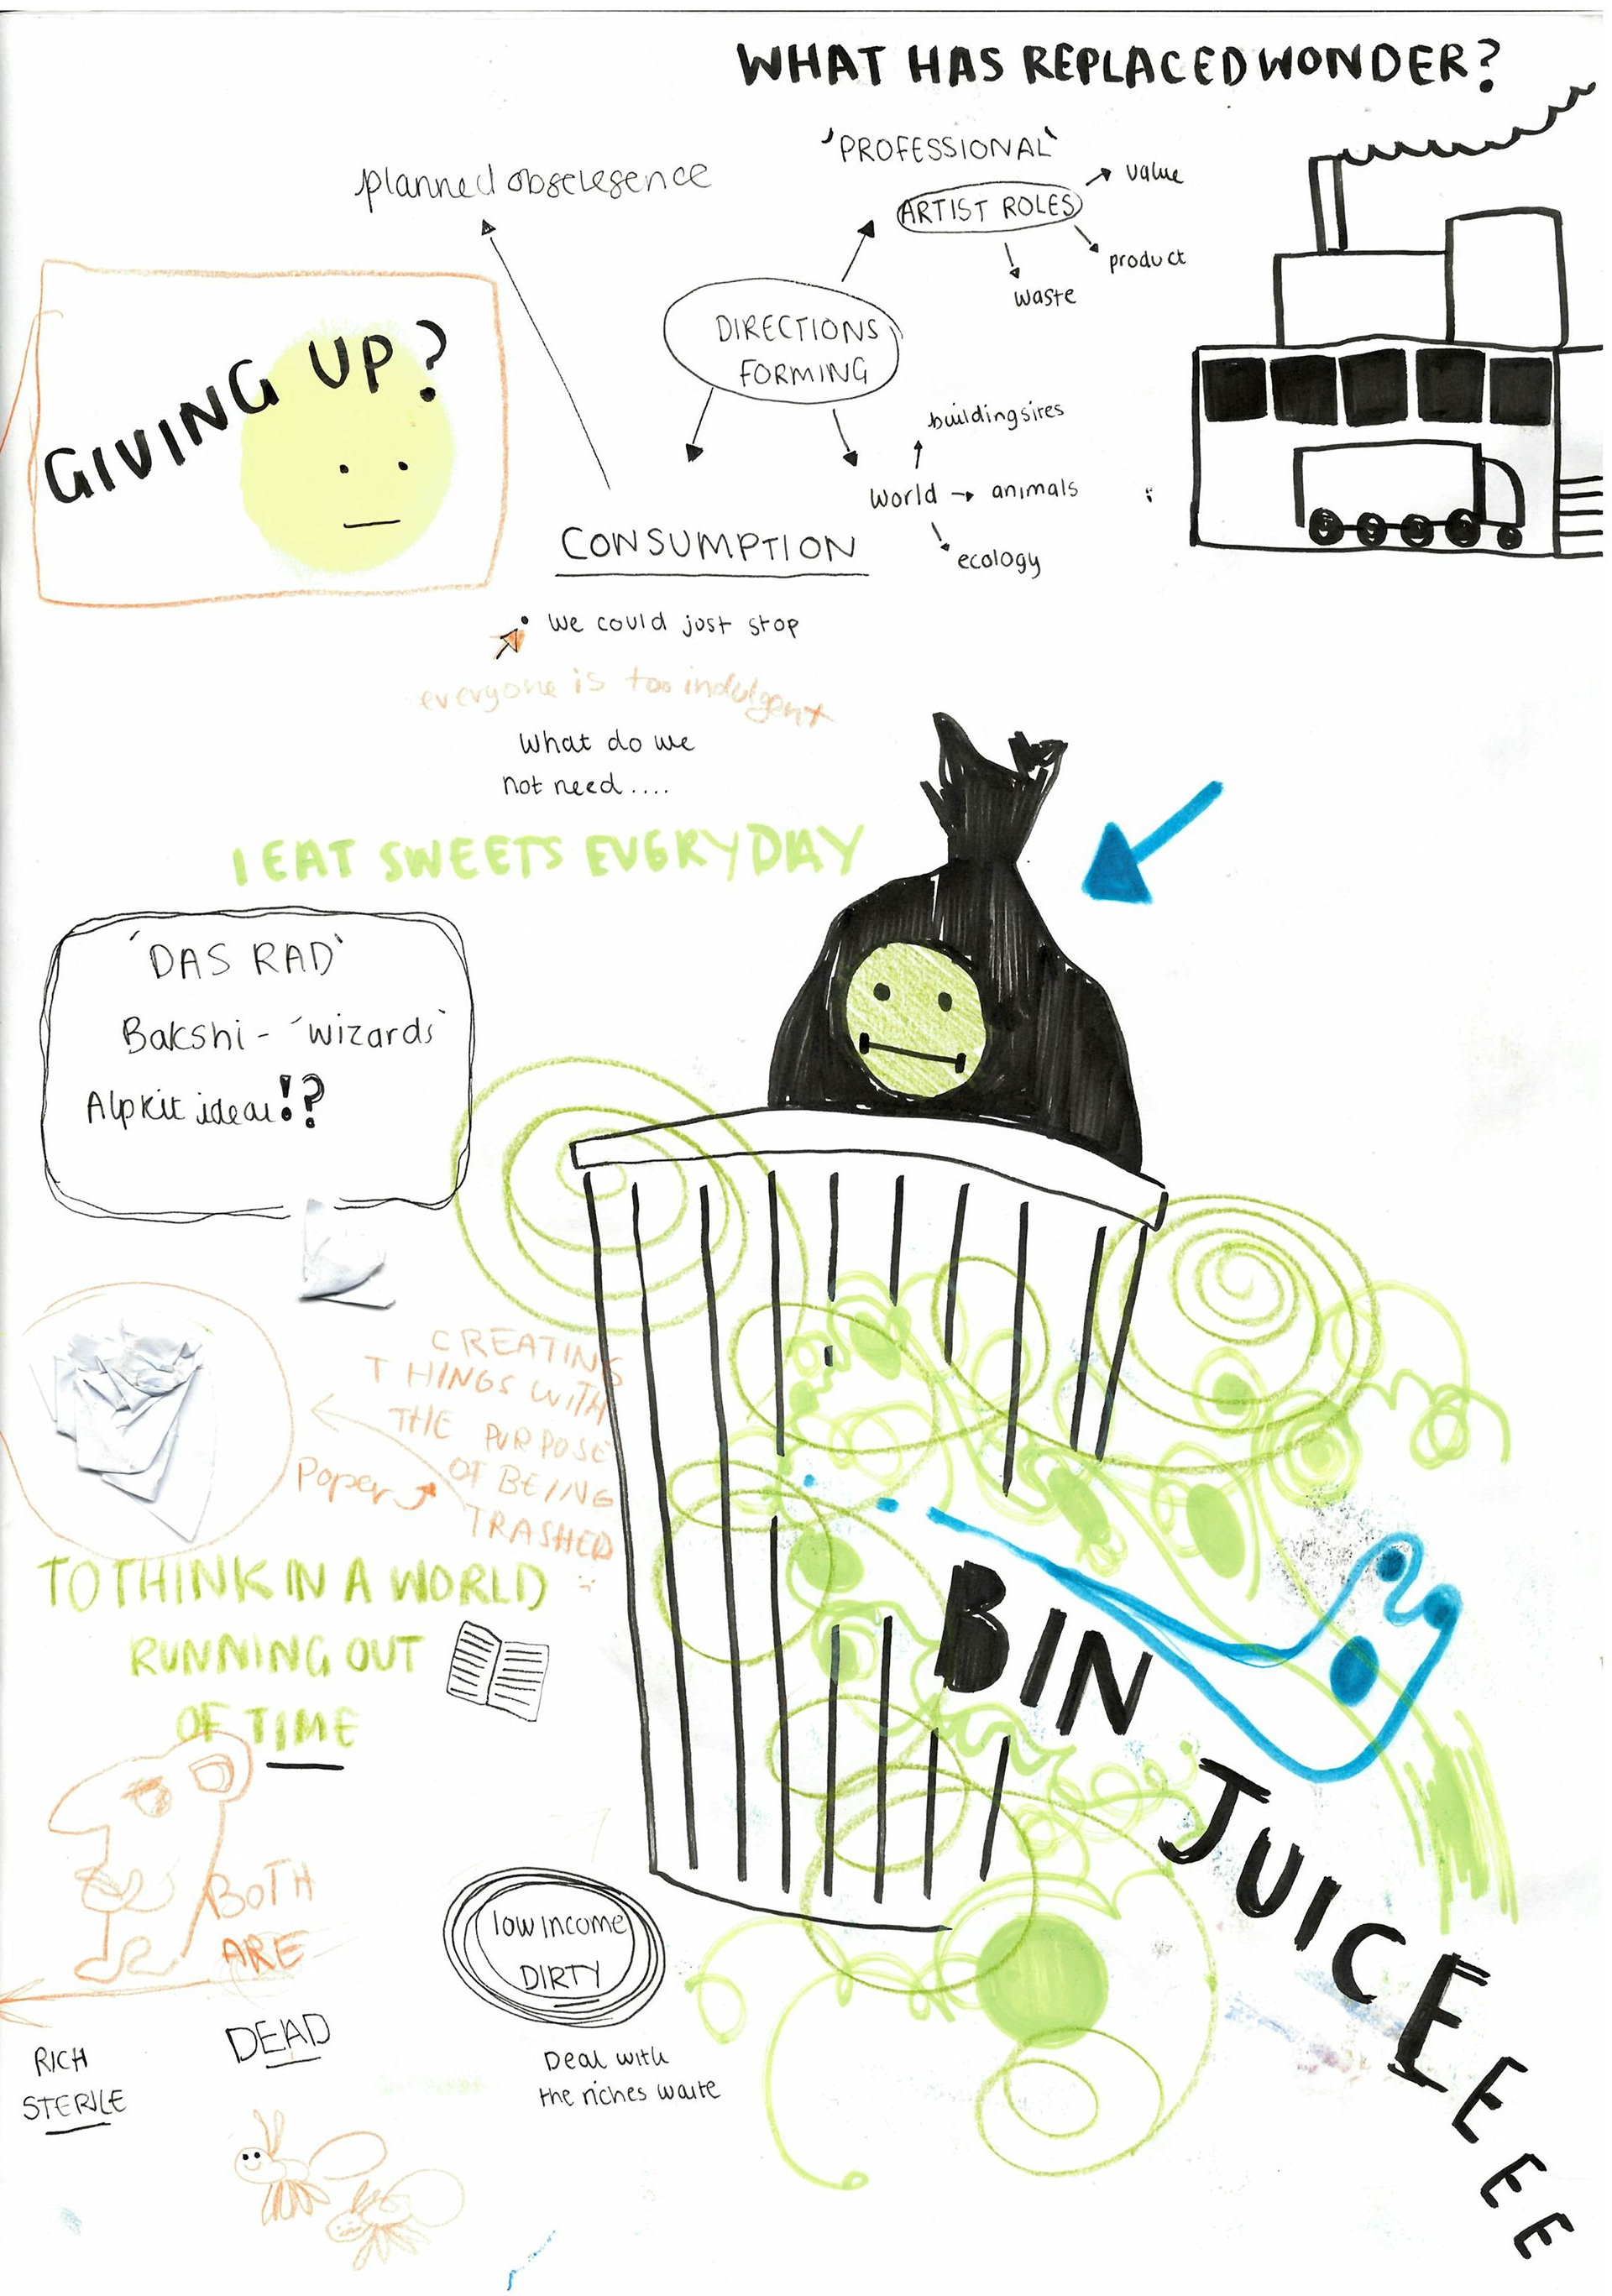 WHAT HAS REPLACED WONDER?
'PROFESSIONAL'
ARTIST ROLES
value
product
waste
planned obselesence
DIRECTIONS
FORMING
GIVING UP?
buildingsites
world → animals
ecology
CONSUMPTION
• we could just stop
everyone is too indulgent
What do we
not need....
I EAT SWEETS EVERYDAY
'DAS RAD'
Bakshi - 'wizards'
Alpkit ideal!?
CREATING
THINGS WITH
THE PURPOSE
OF BEING
TRASHED
Paper
TO THINK IN A WORLD
RUNNING OUT
OF TIME
BIN
JUICEEEEE
BOTH
ARE
DEAD
low income
DIRTY
RICH
STERILE
Deal with
the riches waste